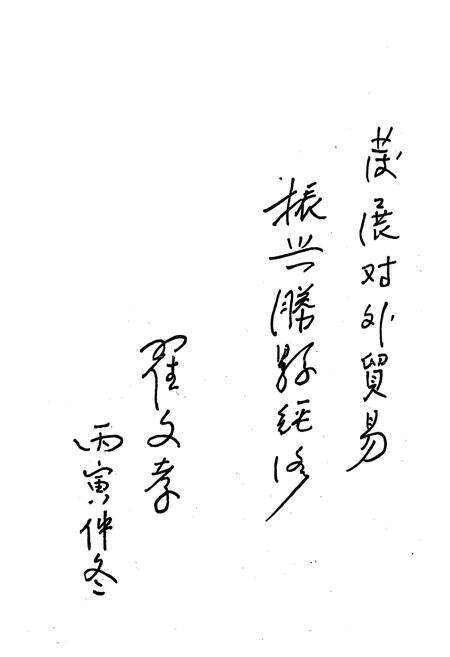 發展对外貿易
振兴滕縣经济
翟文孝
丙寅仲冬